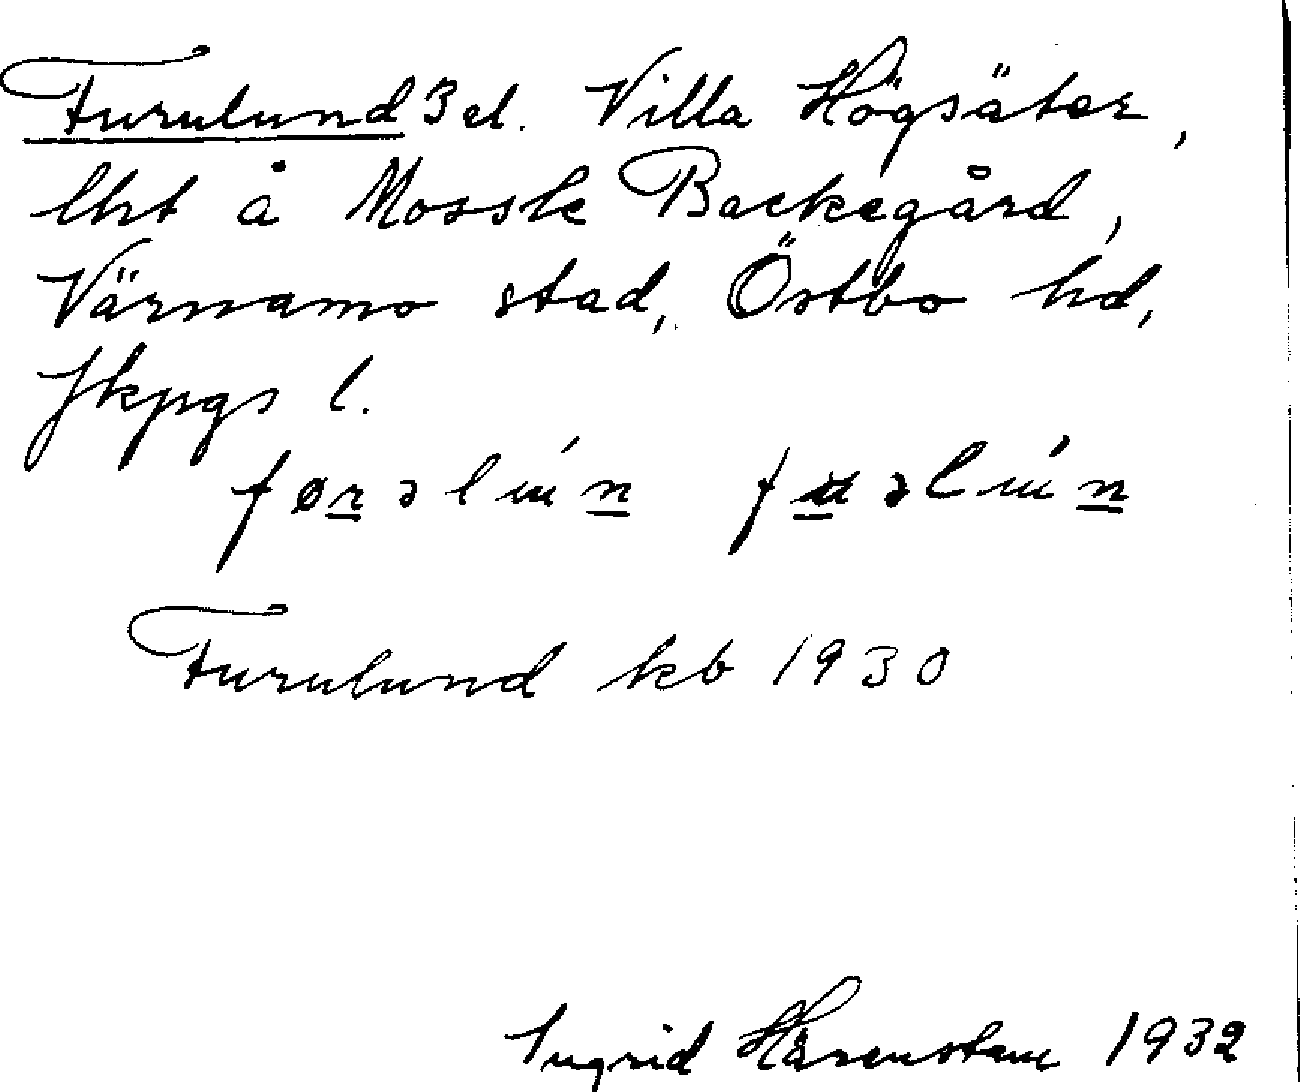 Furulund 3 el. Villa Högsäter,
lht å Mossle Backegård,
Värnamo stad, Östbo hd,
Jkpgs l.
Furulund kb 1930
Ingrid Härenstam 1932